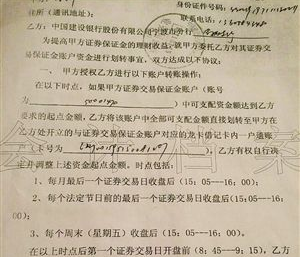 身份证件号码:
住所(通讯地址): 联系电话:
乙方:中国建设银行股份有限公司宁波市分行
为提高甲方证券保证金的理财收益,就甲方委托乙方对其证券交
易保证金账户资金进行划转事宜,双方达成以下协议:
一、 甲方授权乙方进行以下账户转账操作:
在以下时点,如果甲方证券交易保证金账户(账号
)中可支配资金额达到乙方
要求的起点金额,乙方将该账户中全部可支配金额直接划转至甲方在
乙方处开立的与证券交易保证金账户对应的龙卡借记卡内一户通账
户(卡号为 ),乙方有权自行决
定并调整上述资金起点金额。时点包括:
1、每月最后一个证券交易日收盘后(15:05---16:00);
2、每个法定节日前的最后一个证券交易日收盘后(15:05---16:
00);
3、每个周末(星期五)收盘后(15:05---16:00)。
在以上时点后第一个证券交易日开盘前(8:45--9:15),乙方